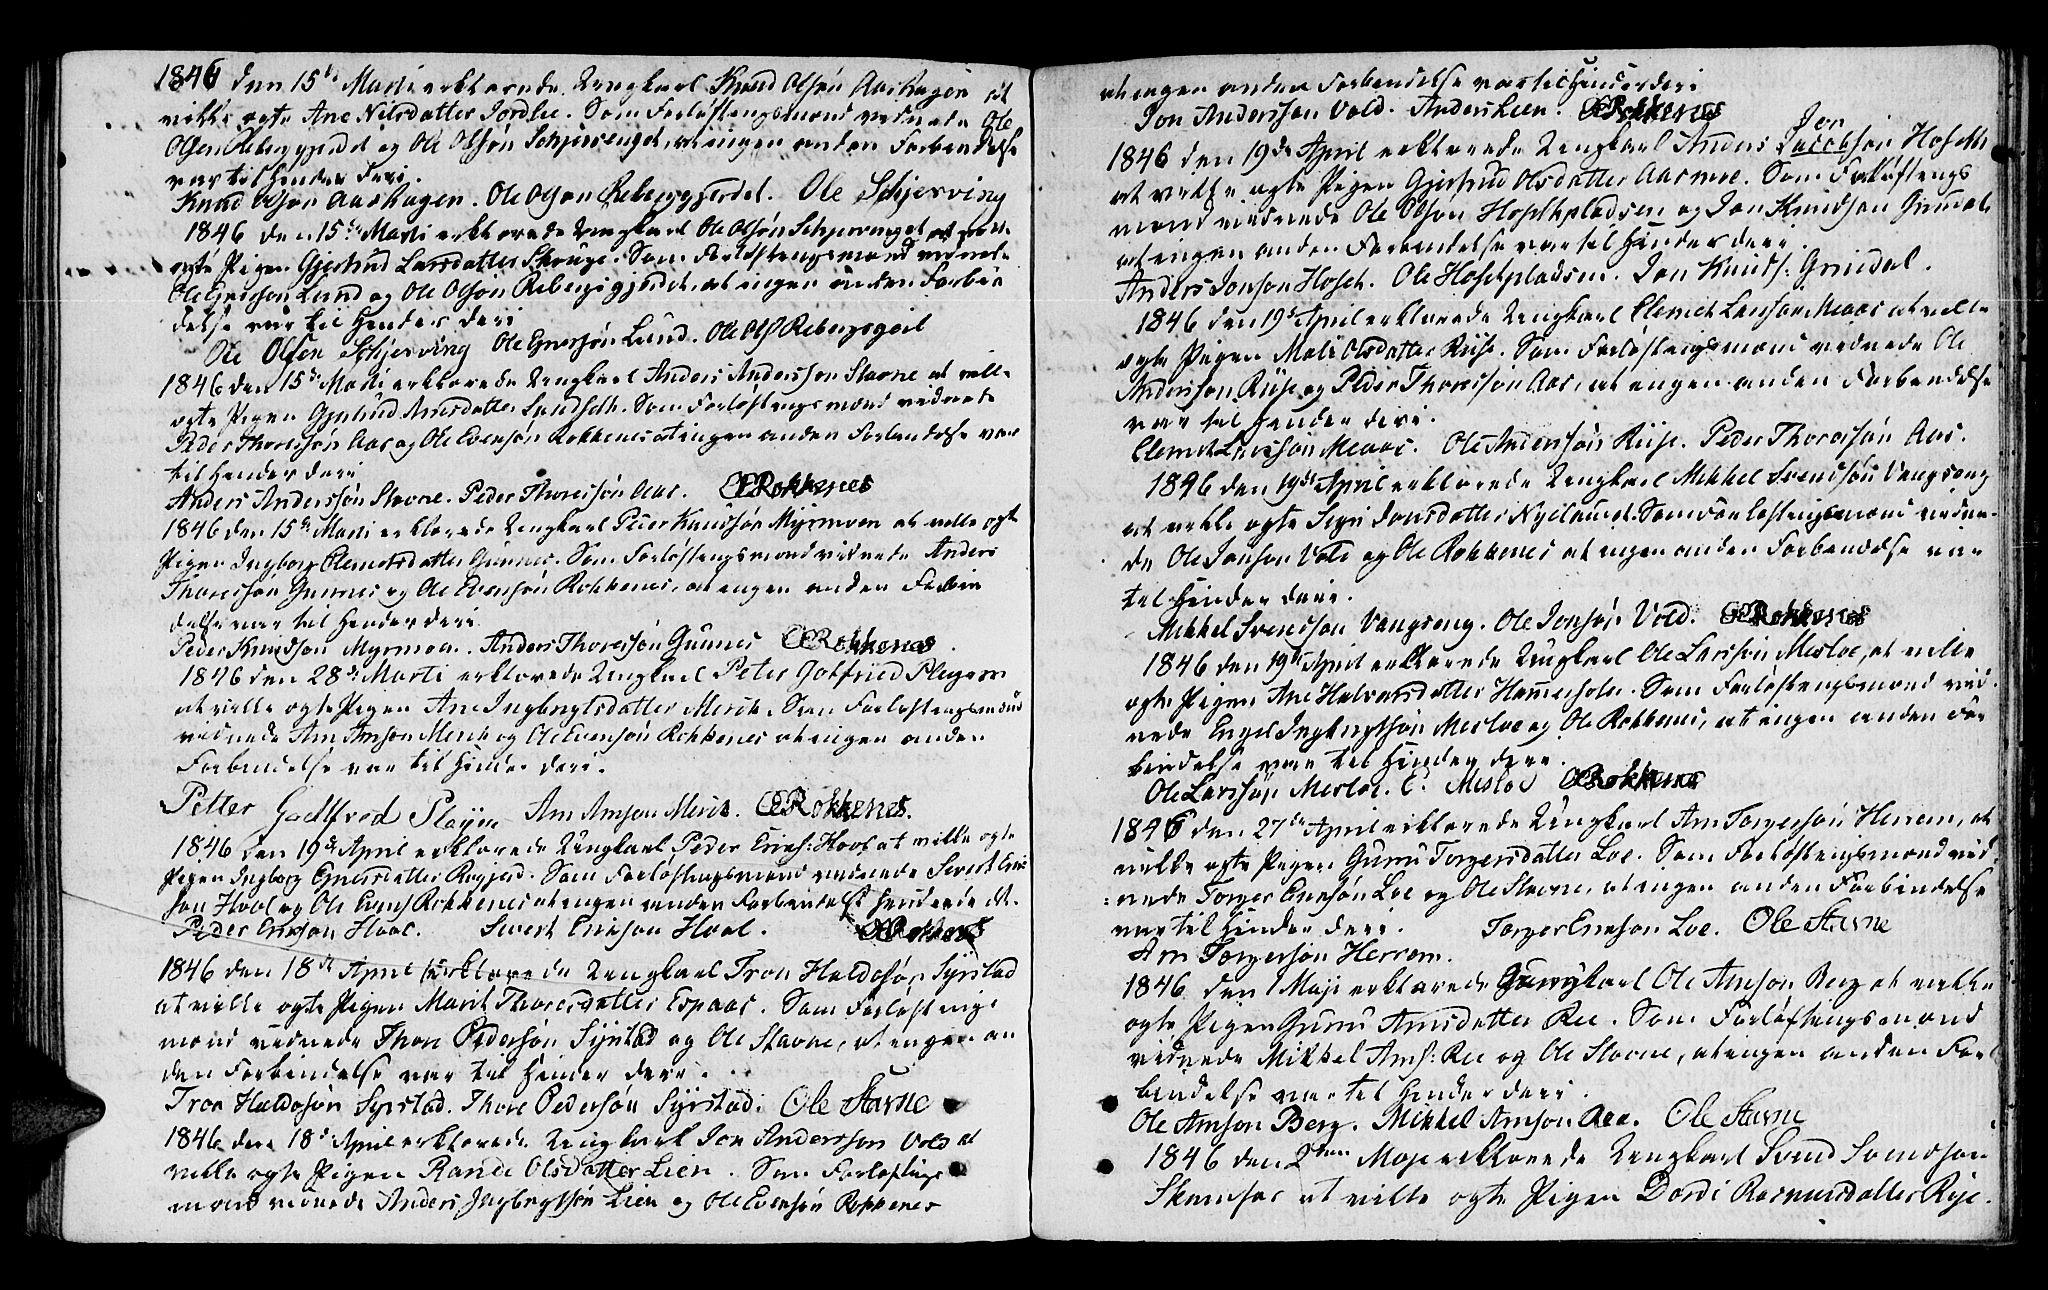 1846 den 15de Marti erklærede Ungkarl Knud Olsøn Aashagen at
ville egte Ane Nilsdatter Jordlie. Som Forloftengsmænd vednede Ole
Olsen Rebergsgjerdet og Ole Olsøn Schjersenget, at ingen anden Forbendelse
var til Hinder deri.
Knud Olsøn Aashagen. Ole Olsøn Rebergsgjerdet. Ole Schjerving
1846 den 15de Marti erklærede Ungkarl Ole Olsøn Schjersenget at ville
egte Pigen Gjertrud Larsdatter. Som Forloftengsmænd vednede
Ole Lund og Ole Olsøn Rebergsgjerdet, at ingen anden Forben
delse var til Hinder deri
Ole Olsen Schjerving Ole Lund. Ole Ols
1846 den 15de Marti erklærede Ungkarl Anders Anderssøn Stavne at ville
egte Pigen Gjertrud Arnsdatter. Som Forloftengsmænd vednede
Peder Thoressøn Aas og Ole Evensøn Rokkenes at ingen anden Forbendelse var
til Hinder deri
Anders Anderssøn Stavne. Peder Thoressøn Aas. OERokkenes
1846 den 15de Marti erklærede Ungkarl Peder Knudsøn Myrmoen at ville egte
Pigen Ingborg Clemetsdatter Gunnes. Som Forloftengsmænd vednede Anders
Thoressøn Gunnes og Ole Evensøn Rokkenes, at engen anden Forben
delse var til Hinder deri
Peder Knudsøn Myrmoen. Anders Thoressøn Gunnes OERokkenes
1846 den 28de Marti erklærede Ungkarl Peter Gotfried Pleyem
at ville egte Pigen Ane Ingbrigtsdatter Merit. Som Forloftengsmænd
vednede Arn Arnsøn Merit og Ole Evensøn Rokkenes at ingen anden
Forbendelse var til Hinder deri.
Petter Godtfred Pløyen Arn Arnsøn Merit. OERokkenes.
1846 den 19de April erklærede Ungkarl Peder Eriks: Hool at ville egte
Pigen Ingborg. Som Forloftengsmænd vednede Sivert Erik
søn Hool og Ole Evens Rokkenes at engen anden Forbendelse hindrede det.
Peder Erikson Hool. Sivert Erikson Hool. OERokkenes
1846 den 18de April erklærede Ungkarl Tron Haldosøn Syrstad
at ville egte Pigen Marit Thoresdatter Espaas. Som Forlofteng
mænd vednede Thore Pedersøn Syrstad og Ole Stavne, at engen an
den Forbindelse var til Hinder deri.
Tron Haldosøn Syrstad. Thore Pedersøn Syrstad. Ole Stavne
1846 den 18de April erklærede Ungkarl Jon Anderssøn Vold at
ville egte Pigen Randi Olsdatter Lien. Som Forloftengs
mænd vednede Anders Ingbrigtsøn Lien og Ole Evensøn Rokkenes
at ingen anden Forbendelse var til Hinder deri
Jon Anderssøn Vold. Anders Lien. OERokkenes
Jon
1846 den 19de April erklærede Ungkarl Anders Jacobsøn Hoseth
at ville egte Pigen Gjertrud Olsdatter Aasmoe. Som Forloftengs
mænd vednede Ole Olsøn Hosethpladsen og Jon Knudsøn Grindal
at ingen anden Forbendelse var til Hinder deri.
Anders Jonsøn Hoset. Ole Hosetpladsen. Jon Knuds: Grindal.
1846 den 19de April erklærede Ungkarl Clemet Larssøn Meaas at ville
egte Pigen Mali Olsdatter Riise. Som Forloftengsmænd vednede Ole
Anderssøn Riise og Peder Thoressøn Aas, at engen anden Forbendelse
var til Hender deri.
Clemet Larssøn Meaas. Ole Anderssøn Riise. Peder Thoresøn Aas.
1846 den 19de April erklærede Ungkarl Mikkel Svendsøn Vangseng
at ville egte Sigri Jonsdatter. Som Forloftengsmænd vedne-
de Ole Jonsøn Vold og Ole Rokkenes at ingen anden Forbendelse var
til Hinder deri.
Mikkel Svendsøn Vangseng. Ole Jonsøn Vold. OERokkenes
1846 den 19de April erklærede Ungkarl Ole Larssøn Mesloe, at ville
egte Pigen Ane Halvorsdatter. Som Forloftengsmænd ved
nede Engel Ingbrigtsøn Mesloe og Ole Rokkenes, at ingen anden For
bindelse var til Hinder deri.
Ole Larssøn Mesloe. E. Mesloe OERokkenes
1846 den 27de April erklærede Ungkarl Arn Torgersøn Herrem, at
ville egte Pigen Guru Torgersdatter Loe. Som Forloftengsmænd ved
nede Torger Eriksøn Loe og Ole Stavne, at ingen anden Forbindelse
var til Hinder deri. Torger Eriksøn Loe. Ole Stavne
Arn Torgersøn Herrem.
1846 den 1 Maje erklærede Ungkarl Ole Arnsøn Berg at ville
egte Pigen Guru Arnsdatter Ree. Som Forloftengsmænd
vednede Mikkel Arns: Ree og Ole Stavne, at ingen anden For
bendelse var til Hinder deri.
Ole Arnsøn Berg. Mikkel Arnsøn Ree. Ole Stavne
1846 den 2den Maje erklærede Ungkarl Svend
at ville egte Pigen Dordi Rasmusdatter